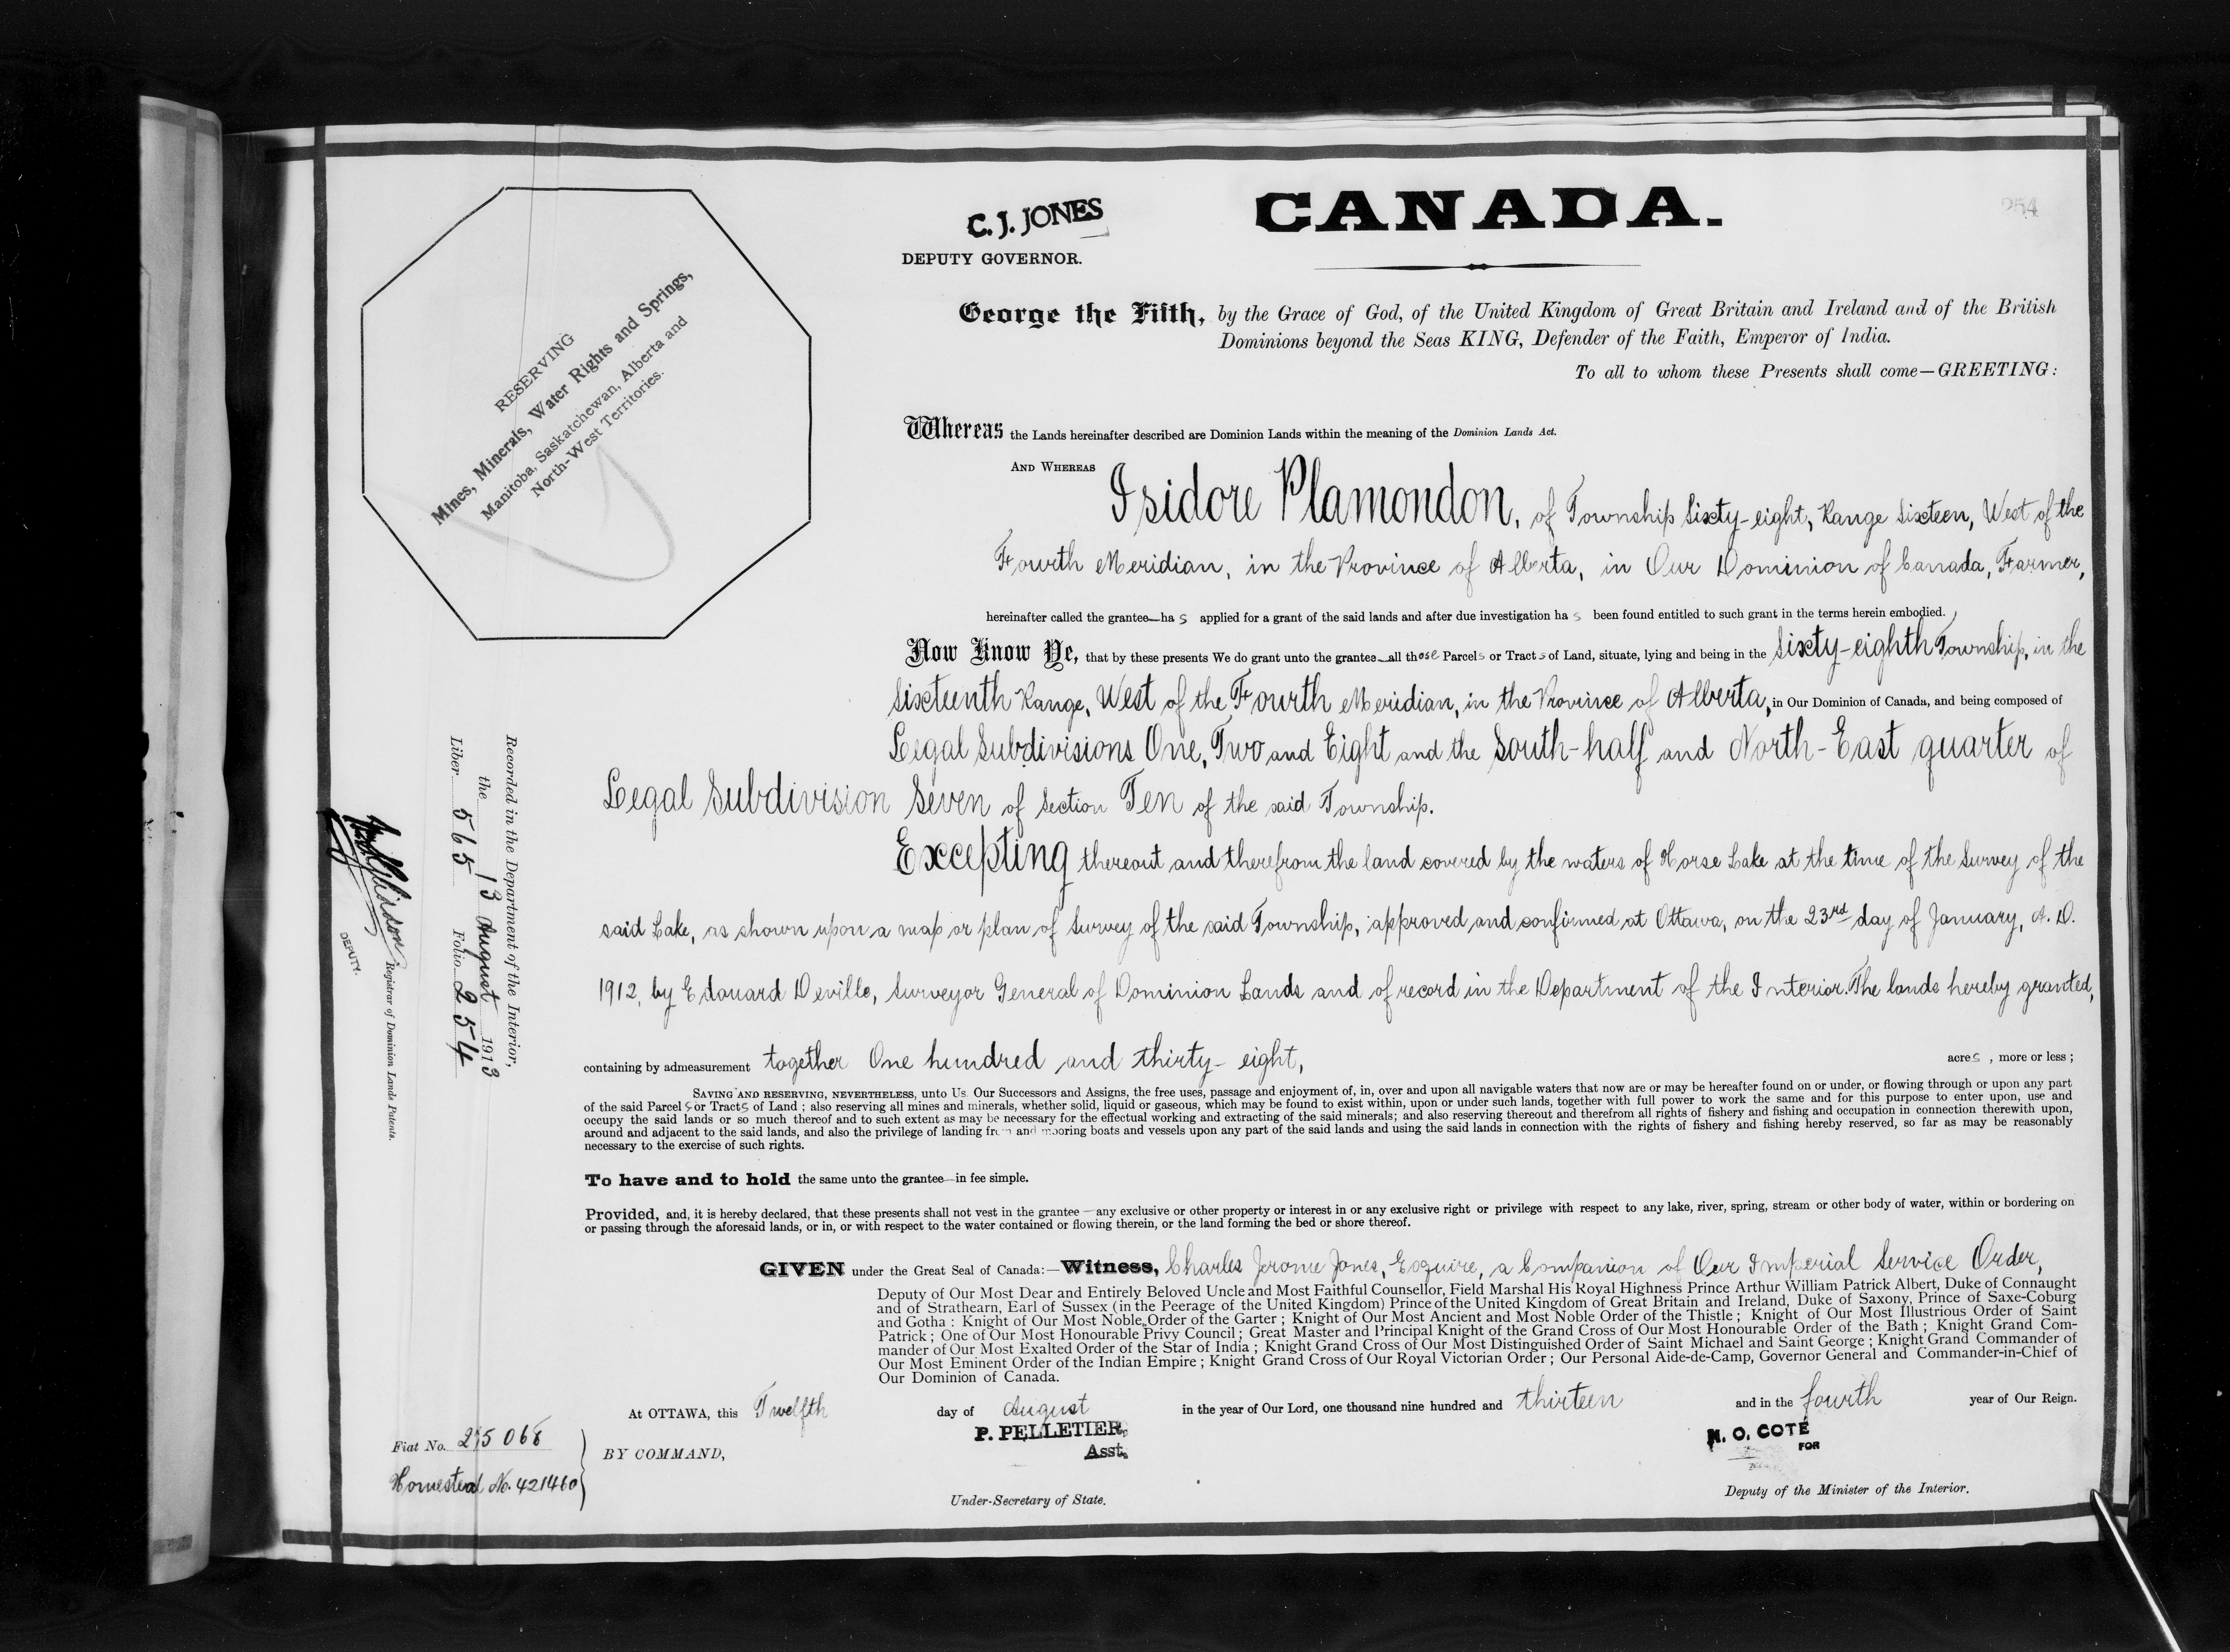 254
C. J. JONES
DEPUTY GOVERNOR.
CANADA.
RESERVING
Mines, Minerals, Water Rights and Springs,
Manitoba, Saskatchewan, Alberta and
North-West Territories.
George the Fifth, by the Grace of God, of the United Kingdom of Great Britain and Ireland and of the British
Dominions beyond the Seas KING, Defender of the Faith, Emperor of India.
To all to whom these Presents shall come—GREETING:
Whereas the Lands hereinafter described are Dominion Lands within the meaning of the Dominion Lands Act.
AND WHEREAS Isidore Plamondon, of Township Sixty-eight, Range Sixteen, West of the
Fourth Meridian, in the Province of Alberta, in Our Dominion of Canada, Farmer,
hereinafter called the grantee—has applied for a grant of the said lands and after due investigation has been found entitled to such grant in the terms herein embodied.
Now Know Ye, that by these presents We do grant unto the grantee—all those Parcels or Tracts of Land, situate, lying and being in the Sixty-eighth Township, in the
Sixteenth Range, West of the Fourth Meridian, in the Province of Alberta, in Our Dominion of Canada, and being composed of
Legal Subdivisions One, Two and Eight and the South-half and North-East quarter of
Legal Subdivision Seven of Section Ten of the said Township.
Excepting thereout and therefrom the land covered by the waters of Horse Lake at the time of the Survey of the
said Lake, as shown upon a map or plan of Survey of the said Township, approved and confirmed at Ottawa, on the 23rd day of January, A. D.
1912, by Edouard Deville, Surveyor General of Dominion Lands and of record in the Department of the Interior. The lands hereby granted,
containing by admeasurement together One hundred and thirty-eight, acres, more or less;
SAVING AND RESERVING, NEVERTHELESS, unto Us Our Successors and Assigns, the free uses, passage and enjoyment of, in, over and upon all navigable waters that now are or may be hereafter found on or under, or flowing through or upon any part
of the said Parcels or Tracts of Land; also reserving all mines and minerals, whether solid, liquid or gaseous, which may be found to exist within, upon or under such lands, together with full power to work the same and for this purpose to enter upon, use and
occupy the said lands or so much thereof and to such extent as may be necessary for the effectual working and extracting of the said minerals; and also reserving thereout and therefrom all rights of fishery and fishing and occupation in connection therewith upon,
around and adjacent to the said lands, and also the privilege of landing from and mooring boats and vessels upon any part of the said lands and using the said lands in connection with the rights of fishery and fishing hereby reserved, so far as may be reasonably
necessary to the exercise of such rights.
To have and to hold the same unto the grantee—in fee simple.
Provided, and, it is hereby declared, that these presents shall not vest in the grantee—any exclusive or other property or interest in or any exclusive right or privilege with respect to any lake, river, spring, stream or other body of water, within or bordering on
or passing through the aforesaid lands, or in, or with respect to the water contained or flowing therein, or the land forming the bed or shore thereof.
GIVEN under the Great Seal of Canada:—Witness, Charles Jerome Jones, Esquire, a Companion of Our Imperial Service Order,
Deputy of Our Most Dear and Entirely Beloved Uncle and Most Faithful Counsellor, Field Marshal His Royal Highness Prince Arthur William Patrick Albert, Duke of Connaught
and of Strathearn, Earl of Sussex (in the Peerage of the United Kingdom) Prince of the United Kingdom of Great Britain and Ireland, Duke of Saxony, Prince of Saxe-Coburg
and Gotha: Knight of Our Most Noble Order of the Garter; Knight of Our Most Ancient and Most Noble Order of the Thistle; Knight of Our Most Illustrious Order of Saint
Patrick; One of Our Most Honourable Privy Council; Great Master and Principal Knight of the Grand Cross of Our Most Honourable Order of the Bath; Knight Grand Com-
mander of Our Most Exalted Order of the Star of India; Knight Grand Cross of Our Most Distinguished Order of Saint Michael and Saint George; Knight Grand Commander of
Our Most Eminent Order of the Indian Empire; Knight Grand Cross of Our Royal Victorian Order; Our Personal Aide-de-Camp, Governor General and Commander-in-Chief of
Our Dominion of Canada.
At OTTAWA, this Twelfth day of August in the year of Our Lord, one thousand nine hundred and thirteen and in the fourth year of Our Reign.
BY COMMAND,
P. PELLETIER,
Asst.
Under-Secretary of State.
N. O. COTÉ
FOR
Deputy of the Minister of the Interior.
Fiat No. 215068
Homestead No. 421460
Recorded in the Department of the Interior,
the 13 August 1913
Liber 565 Folio 254
Registrar of Dominion Lands Patents.
DEPUTY.